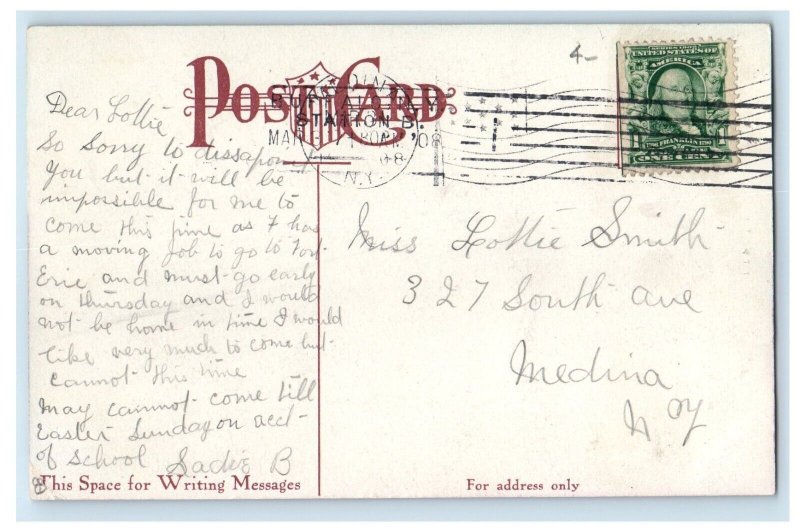 POST CARD
4-
SERIES 1902
UNITED STATES OF
AMERICA
FRANKLIN
ONE CENT
BUFFALO, N.Y.
STATION B.
MAR
'08
N.Y.
Dear Lottie
So Sorry to dissapoint
you but it will be
impossible for me to
come this time as F has
a moving job to go to Fort
Erie and must go early
on Thursday and I would
not be home in time I would
like very much to come but
cannot this time
May cannot come till
Easter Sunday on acct
of school Sadie B
Miss Lottie Smith
327 South Ave
Medina
N Y
This Space for Writing Messages
For address only